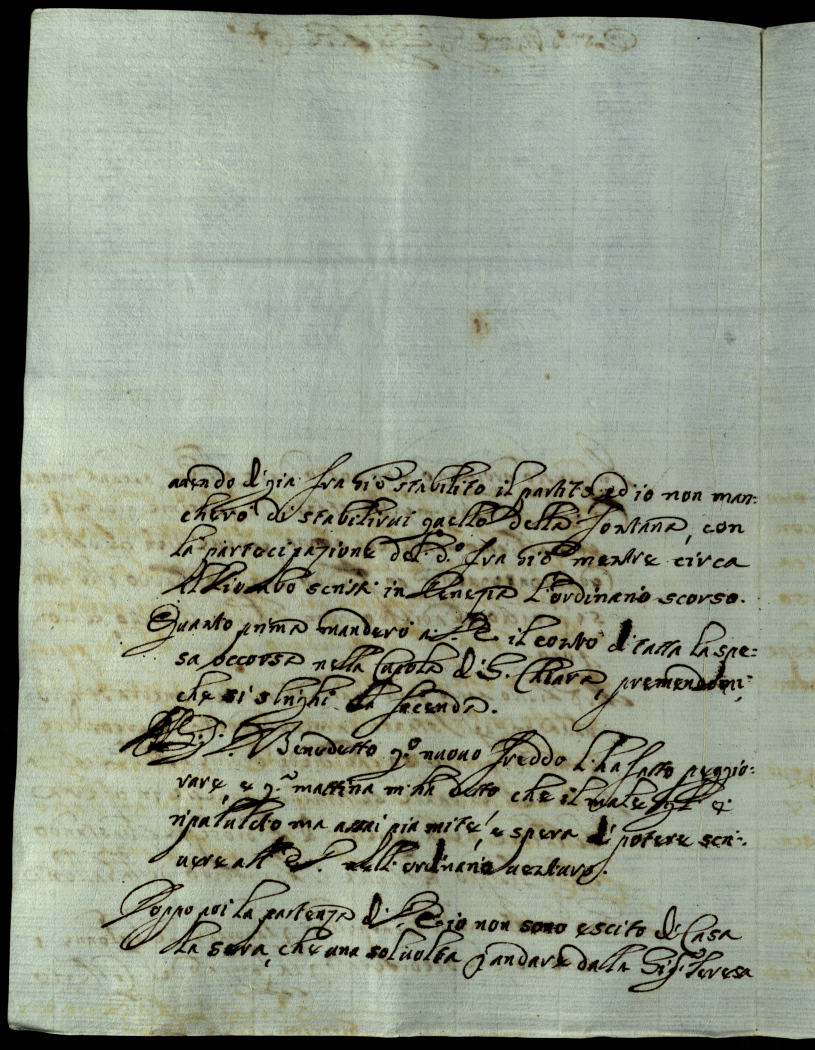 auendo di già fra Giō stabilito il partito, ed io non man:
cherò di stabilirui quello della Fontana, con
la partecipazione del d.º fra Giō mentre circa
scrissi in Venezia l'ordinario scorso.
Quanto prima manderò a il conto di tutta la spe:
sa occorsa nella Cauola di S. Chiara, premendomi
che si slrighi la facenda.
Benedetto q.º nuouo freddo l'ha fatto peggio:
rare, e q.ª mattina m'ha detto che il male
ripatulcito ma assai più mite, e spera di potere scri:
uere all' nell'ordinario uenturo.
Doppo poi la partenza di io non sono escito di Casa
la sera, che una sol uolta p andare dalla Sig.ª Teresa